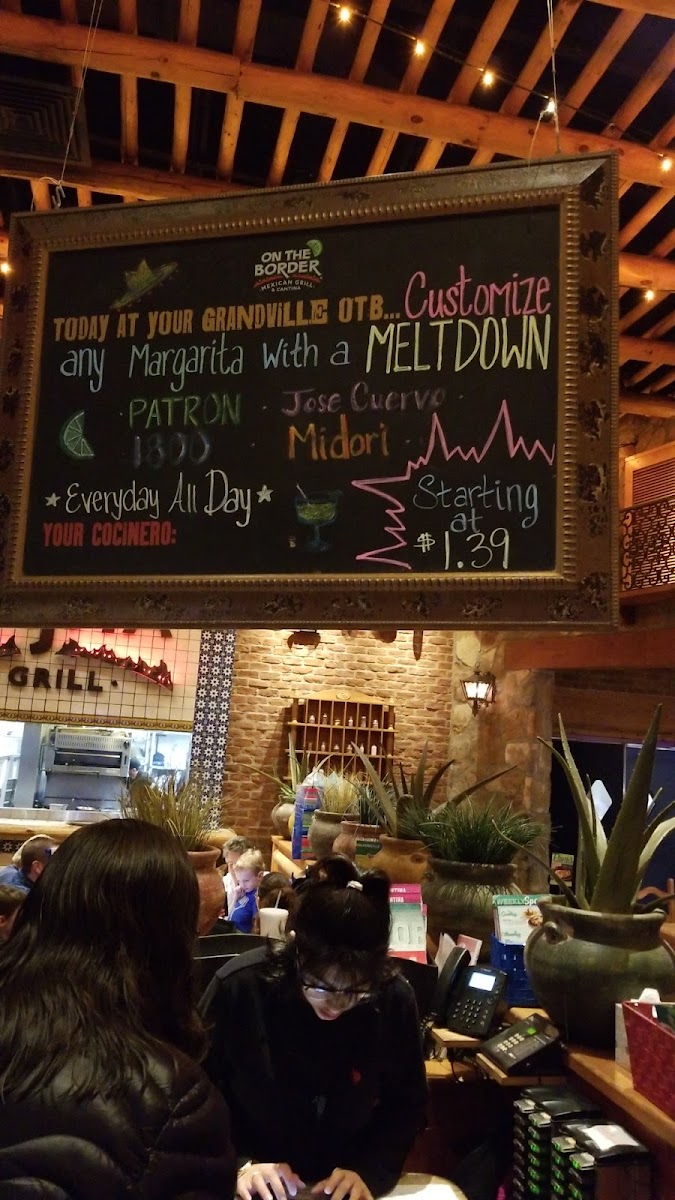 ON THE
BORDER
MEXICAN GRILL
& CANTINA
TODAY AT YOUR GRANDVILLE OTB... Customize
any Margarita with a MELTDOWN
· PATRON · Jose Cuervo ·
1800 Midori
★ Everyday All Day ★
Starting
at
$1.39
YOUR COCINERO:
GRILL
WEEKLY